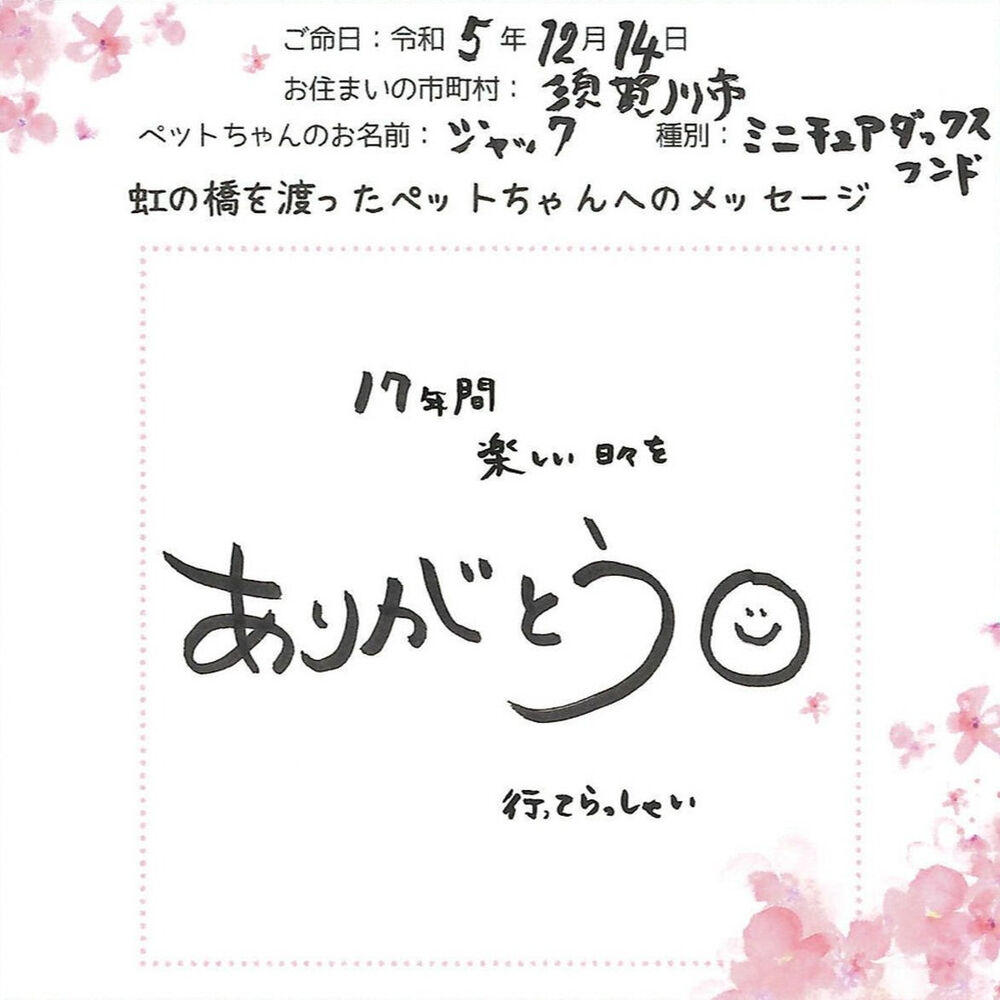 ご命日：令和5年12月14日
お住まいの市町村：須賀川市
ペットちゃんのお名前：ジャック 種別：ミニチュアダックス
フンド
虹の橋を渡ったペットちゃんへのメッセージ
17年間
楽しい日々を
ありがとう
行ってらっしゃい